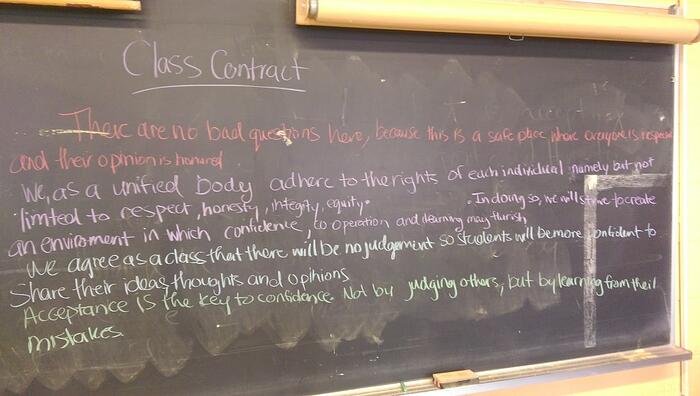 Class Contract
There are no bad questions here, because this is a safe place where everyone is respected
and their opinion is honored
We, as a unified body adhere to the rights of each individual namely but not
limted to respect, honesty, integity, equity. In doing so, we will strive to create
an enviroment in which confidence, co operation and learning may flurish
We agree as a class that there will be no judgement so students will be more confident to
Share their ideas, thoughts and opinions
Acceptance is the key to confidence. Not by judging others, but by learning from their
mistakes.